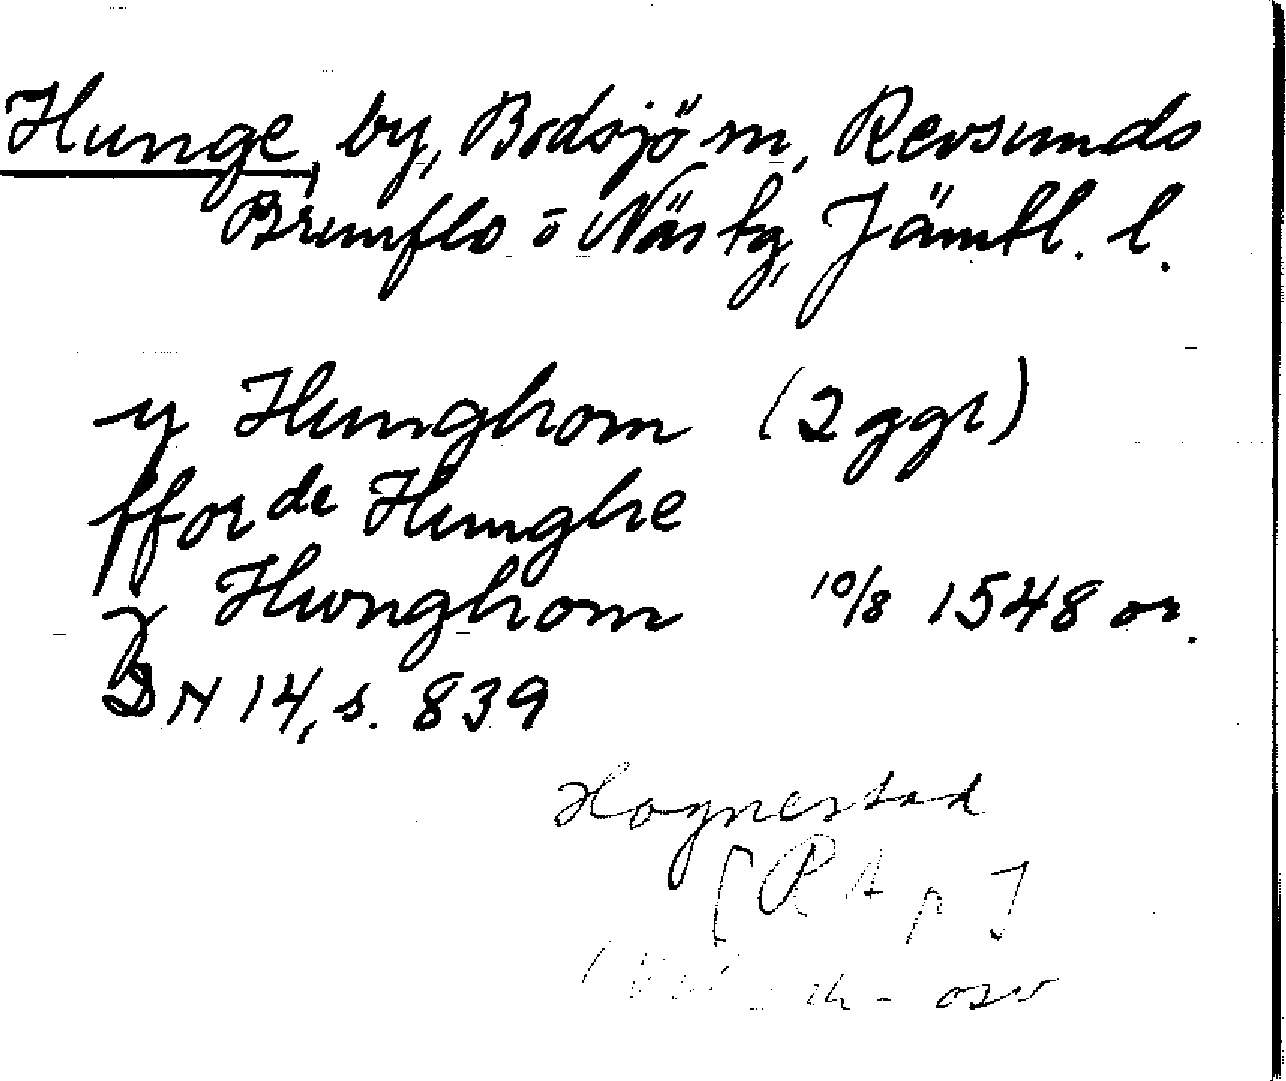 Hunge, by, Bodsjö sn, Revsunds
Brunflo o Näs tg, Jämtl. l.
y Hunghom (2 ggr)
ffor de Hunghe
y Hwnghom 10/8 1548 or.
DN 14, s. 839
Hognestad
[RAp]
osv